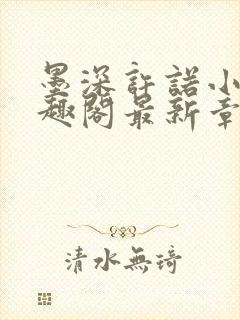 墨深許諾小
趣閣最新章
清水無琦